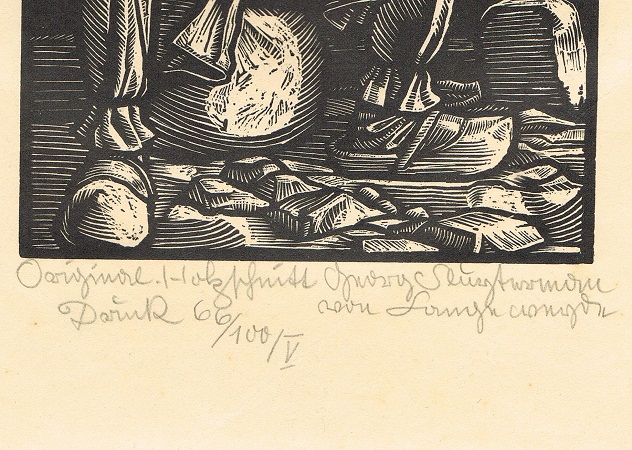 Original-Holzschnitt Georg Sluyterman
Druck 66/100/V von Langeweyde